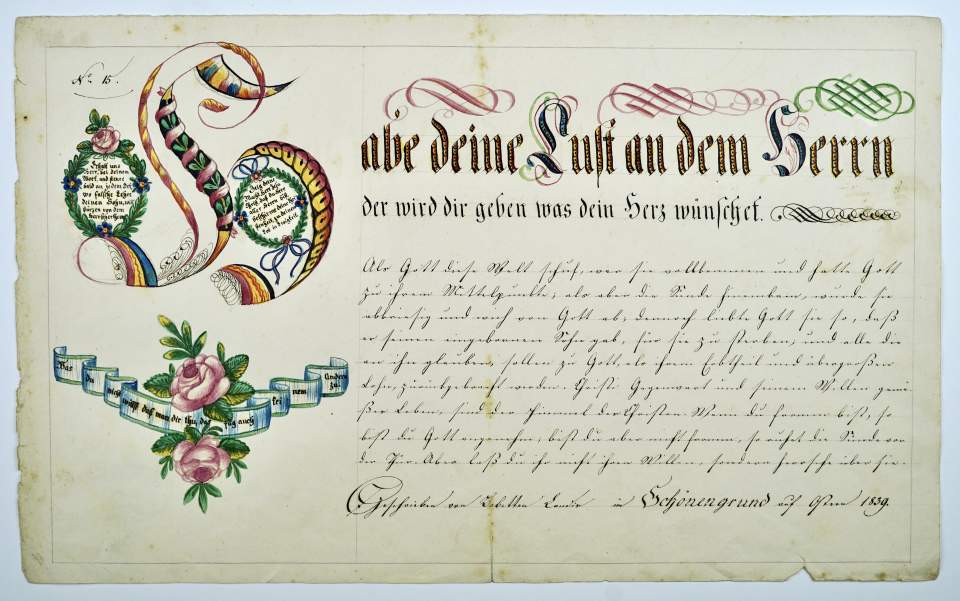 No 15.
Habe deine Lust an dem Herrn
der wird dir geben was dein Herz wünschet.
Erhalt uns
Herr, bei deinem
Wort, und steure
bald an jedem Ort,
wo falsche Lehre
deinen Sohn, will
stürzen von dem
Was du nicht willst daß man dir thu, das füg auch keinem Andern zu.
Als Gott diese Welt schuf, war sie vollkommen und hatte Gott
zu ihrem Mittelpunkte; als aber die Sünde hineinkam, wurde sie
und wich von Gott ab; dennoch liebte Gott sie so, daß
er seinen eingebornen Sohn gab, für sie zu sterben; und alle die
an ihn glauben, sollen zu Gott, als ihrem Erbtheil und übergroßen
Lohn, zurückgebracht werden. Christi Gegenwart und seinem Willen gemä-
ßes Leben, sind der Himmel der Christen. Wenn du fromm bist, so
bist du Gott angenehm; bist du aber nicht fromm, so ruhet die Sünde vor
der Thür. Aber laß du ihr nicht ihren Willen, sondern herrsche über sie.
Geschrieben von Babetten in Schönengrund auf Ostern 1839.